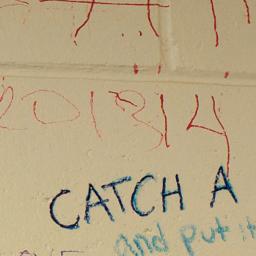 201314
CATCH A
and put it